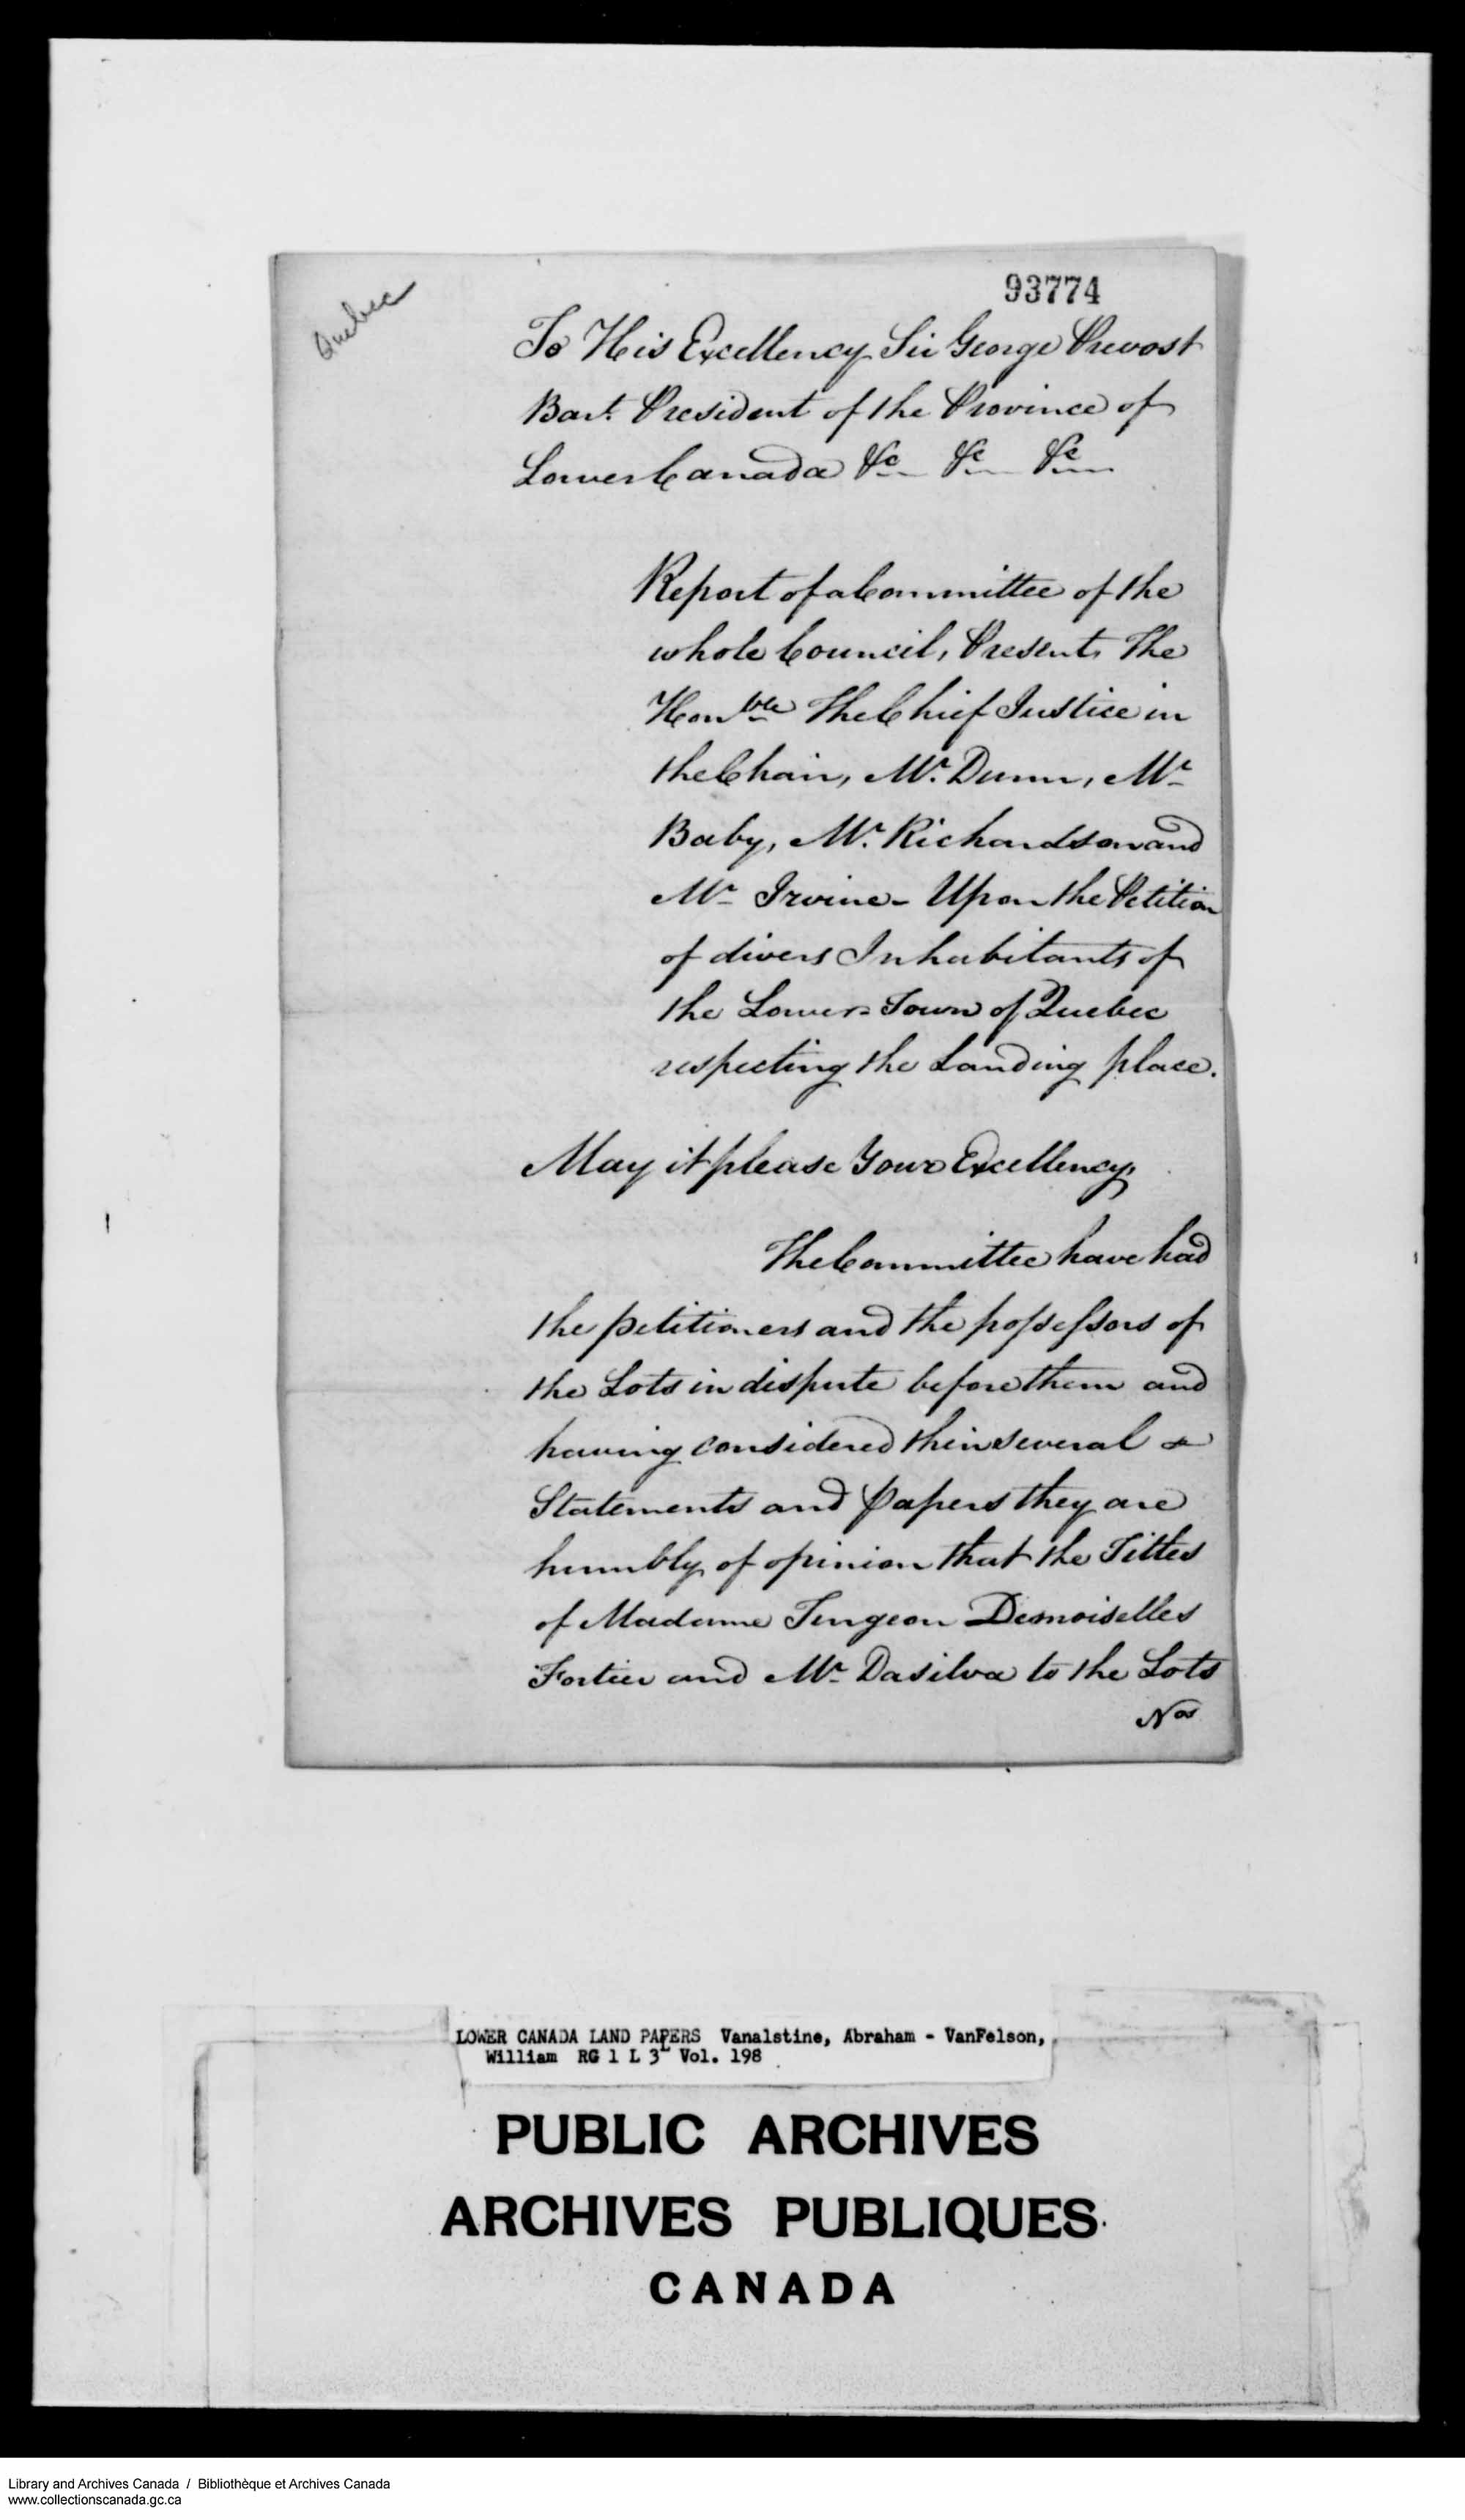 93774
Quebec
To His Excellency Sir George Prevost
Bart. President of the Province of
Lower Canada &c &c &c
Report of a Committee of the
whole Council, Present, The
Honble The Chief Justice in
the Chair, Mr. Dunn, Mr
Baby, Mr. Richardson and
Mr Irvine - Upon the Petition
of divers Inhabitants of
the Lower Town of Quebec
respecting the Landing place.
May it please Your Excellency,
The Committee have had
the petitioners and the possessors of
the Lots in dispute before them and
having considered their several
Statements and papers they are
humbly of opinion that the Titles
of Madame Turgeon Demoiselles
Fortier and Mr Dasilva to the Lots
Nos
LOWER CANADA LAND PAPERS Vanalstine, Abraham - VanFelson,
William RG 1 L 3L Vol. 198
PUBLIC ARCHIVES
ARCHIVES PUBLIQUES
CANADA
Library and Archives Canada / Bibliothèque et Archives Canada
www.collectionscanada.gc.ca